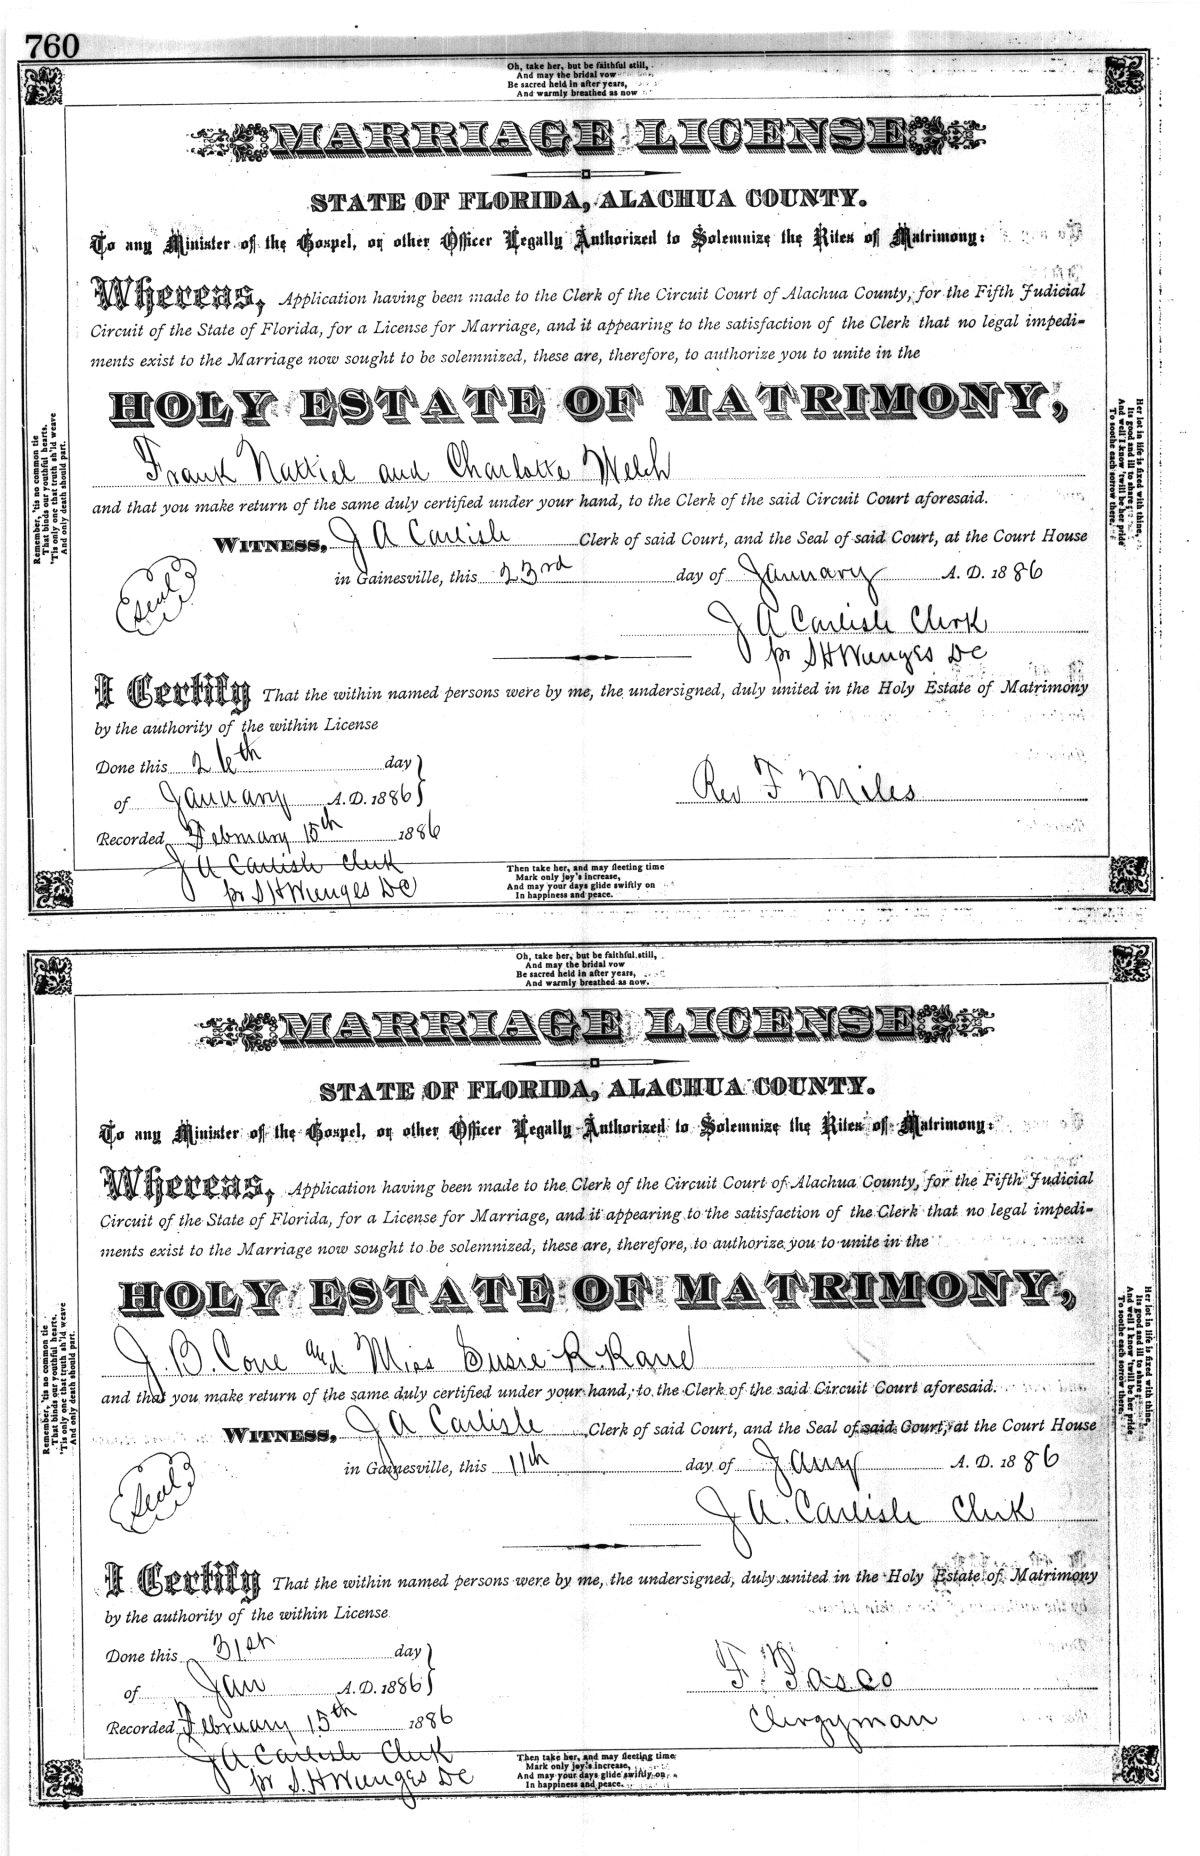 760
Oh, take her, but be faithful still,
And may the bridal vow
Be sacred held in after years,
And warmly breathed as now
MARRIAGE LICENSE
STATE OF FLORIDA, ALACHUA COUNTY.
To any Minister of the Gospel, or other Officer Legally Authorized to Solemnize the Rites of Matrimony:
Whereas, Application having been made to the Clerk of the Circuit Court of Alachua County, for the Fifth Judicial
Circuit of the State of Florida, for a License for Marriage, and it appearing to the satisfaction of the Clerk that no legal impedi-
ments exist to the Marriage now sought to be solemnized, these are, therefore, to authorize you to unite in the
HOLY ESTATE OF MATRIMONY,
Frank Nattiel and Charlotte Welch
and that you make return of the same duly certified under your hand, to the Clerk of the said Circuit Court aforesaid.
WITNESS, J A Carlisle Clerk of said Court, and the Seal of said Court, at the Court House
in Gainesville, this 23rd day of January A. D. 1886
Seal
J A Carlisle Clerk
pr S H Wienges DC
I Certify That the within named persons were by me, the undersigned, duly united in the Holy Estate of Matrimony
by the authority of the within License
Done this 26th day
of January A. D. 1886
Rev F Miles
Recorded February 15th 1886
J A Carlisle Clerk
pr S H Wienges DC
Then take her, and may fleeting time
Mark only joy's increase,
And may your days glide swiftly on
In happiness and peace.
Remember, 'tis no common tie
That binds our youthful hearts,
'Tis only one that truth sh'ld weave
And only death should part.
Her lot in life is fixed with thine,
Its good and ill to share
And well I know 'twill be her pride
To soothe each sorrow there.
Oh, take her, but be faithful still,
And may the bridal vow
Be sacred held in after years,
And warmly breathed as now.
MARRIAGE LICENSE
STATE OF FLORIDA, ALACHUA COUNTY.
To any Minister of the Gospel, or other Officer Legally Authorized to Solemnize the Rites of Matrimony:
Whereas, Application having been made to the Clerk of the Circuit Court of Alachua County, for the Fifth Judicial
Circuit of the State of Florida, for a License for Marriage, and it appearing to the satisfaction of the Clerk that no legal impedi-
ments exist to the Marriage now sought to be solemnized, these are, therefore, to authorize you to unite in the
HOLY ESTATE OF MATRIMONY,
J. B. Cone and Miss Susie R. Kane
and that you make return of the same duly certified under your hand, to the Clerk of the said Circuit Court aforesaid.
WITNESS, J A Carlisle Clerk of said Court, and the Seal of said Court, at the Court House
in Gainesville, this 11th day of Jany A. D. 1886
Seal
J A. Carlisle Clerk
I Certify That the within named persons were by me, the undersigned, duly united in the Holy Estate of Matrimony
by the authority of the within License
Done this 31st day
of Jan A. D. 1886
F. Pasco
Clergyman
Recorded February 15th 1886
J A Carlisle Clerk
pr S. H Wienges DC
Then take her, and may fleeting time
Mark only joy's increase,
And may your days glide swiftly on
In happiness and peace.
Remember, 'tis no common tie
That binds our youthful hearts,
'Tis only one that truth sh'ld weave
And only death should part.
Her lot in life is fixed with thine,
Its good and ill to share
And well I know 'twill be her pride
To soothe each sorrow there.